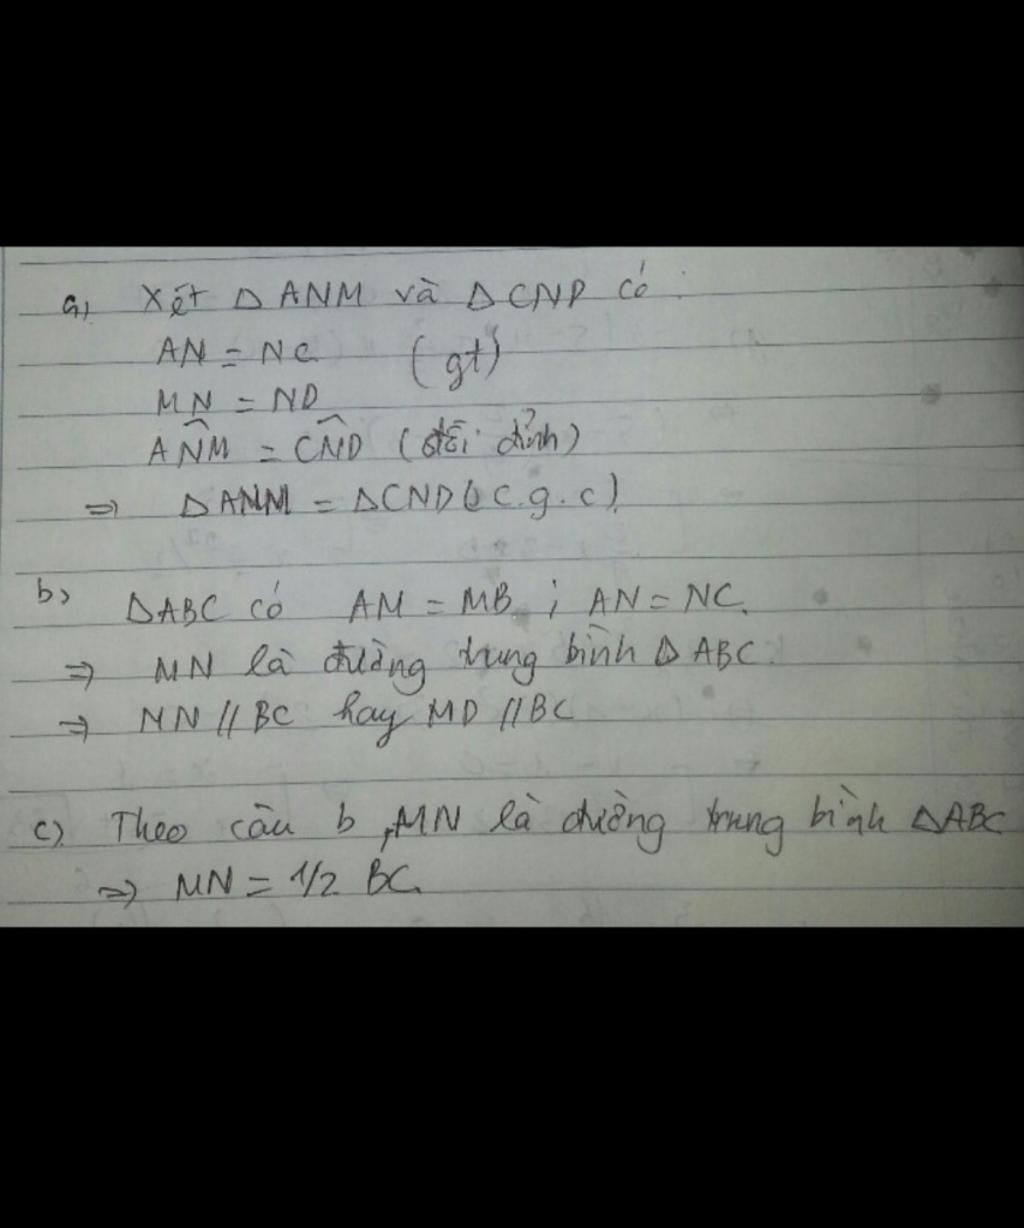 a, Xét Δ ANM và Δ CND có :
AN = NC (gt)
MN = ND
ANM̂ = CND̂ (đối đỉnh)
=> Δ ANM = Δ CND (c.g.c)
b, ΔABC có AM = MB ; AN = NC.
=> MN là đường trung bình Δ ABC.
=> MN // BC hay MD // BC
c) Theo câu b, MN là đường trung bình ΔABC
=> MN = 1/2 BC.